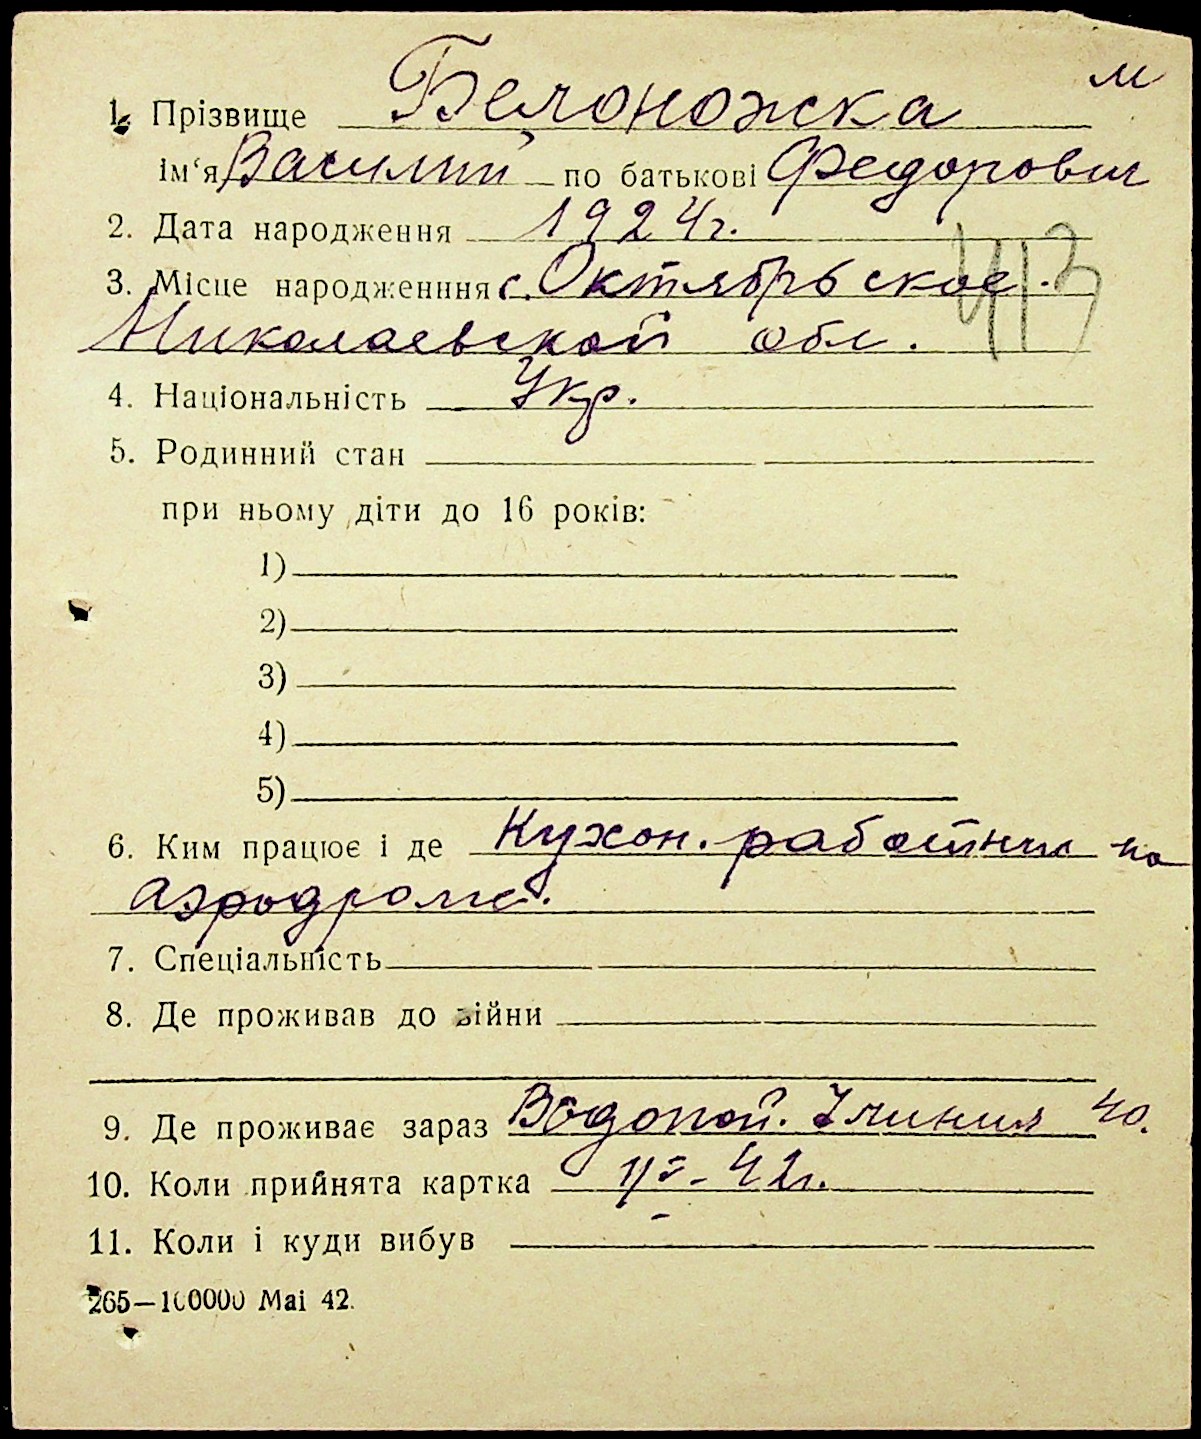 м
1. Прізвище Белоножка
ім‘я Василий по батькові Федорович
2. Дата народження 1924 г.
3. Місце народженння с. Октябрьское.
413
Николаевской обл.
4. Національність Укр.
5. Родинний стан
при ньому діти до 16 років:
1)
2)
3)
4)
5)
6. Ким працює і де Кухон. работник на
аэродроме.
7. Спеціальність
8. Де проживав до війни
9. Де проживає зараз Водопой. линия 40.
10. Коли прийнята картка 42г.
11. Коли і куди вибув
265—100000 Mai 42.